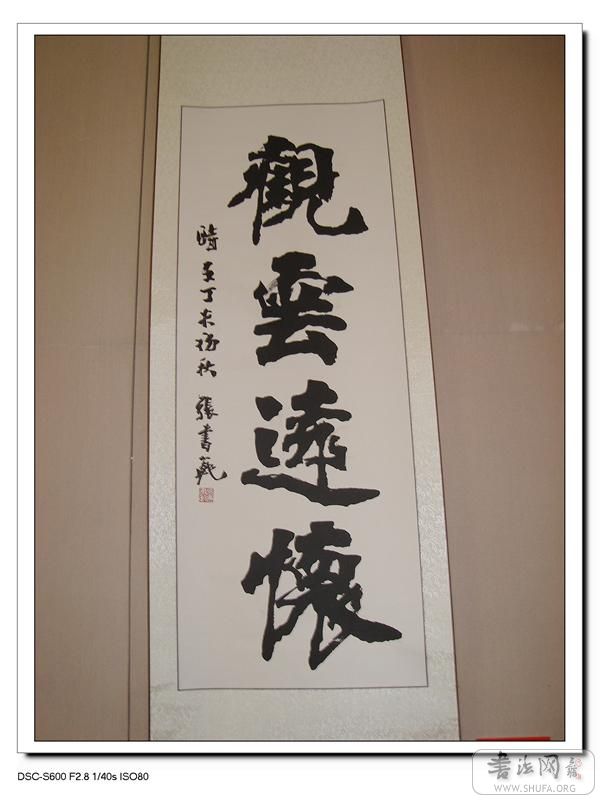 觀雲遠懷
時在丁亥初秋 張書範
DSC-S600 F2.8 1/40s ISO80
书法网
WWW.SHUFA.ORG